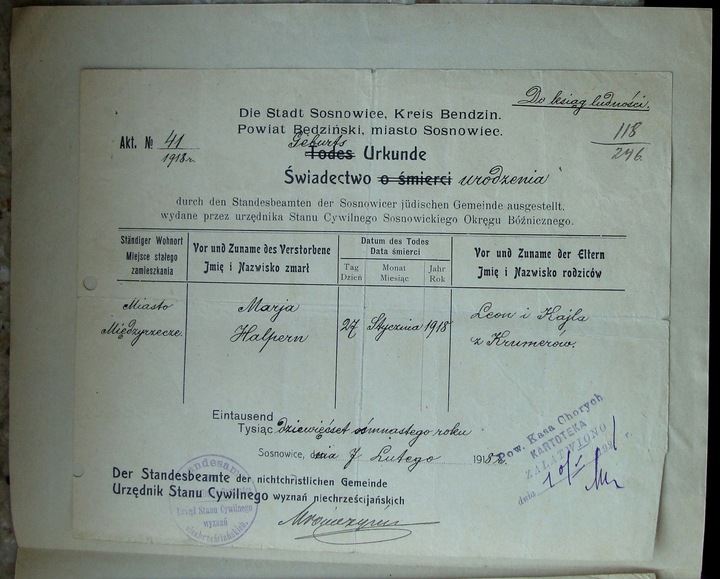 Do ksiąg ludności.
118
296
Die Stadt Sosnowice, Kreis Bendzin.
Powiat Będziński, miasto Sosnowiec.
Akt. № 41
1918 r.
Geburts
Todes Urkunde
Świadectwo o śmierci urodzenia
durch den Standesbeamten der Sosnowicer jüdischen Gemeinde ausgestellt.
wydane przez urzędnika Stanu Cywilnego Sosnowickiego Okręgu Bóżnicznego.
Ständiger Wohnort
Miejsce stałego
zamieszkania
Vor und Zuname des Verstorbene
Imię i Nazwisko zmarł
Datum des Todes
Data śmierci
Tag
Dzień
Monat
Miesiąc
Jahr
Rok
Vor und Zuname der Eltern
Imię i Nazwisko rodziców
Miasto
Międzyrzecze.
Marja
Halpern
27 Stycznia 1918
Leon i Hajla
z Krumerów.
Eintausend
Tysiąc dziewięćset ośmnastego roku
Sosnowice, dnia 7 Lutego 1918 r.
Der Standesbeamte der nichtchristlichen Gemeinde
Urzędnik Stanu Cywilnego wyznań niechrześcijańskich
Standesamt
Urząd Stanu Cywilnego
wyznań
niechrześcijańskich.
Pow. Kasa Chorych
KARTOTEKA
ZAŁATWIONO
dnia
r.